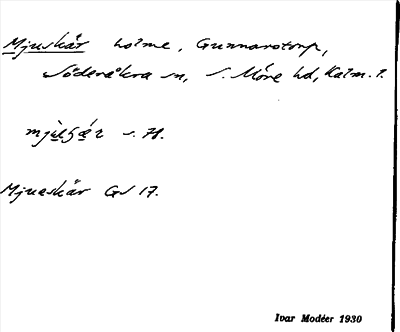 Mjuskär holme, Gunnarstorp,
Söderåkra sn, S. Möre hd, Kalm. l.
s. 78.
Mjueskär GS 17.
Ivar Modéer 1930